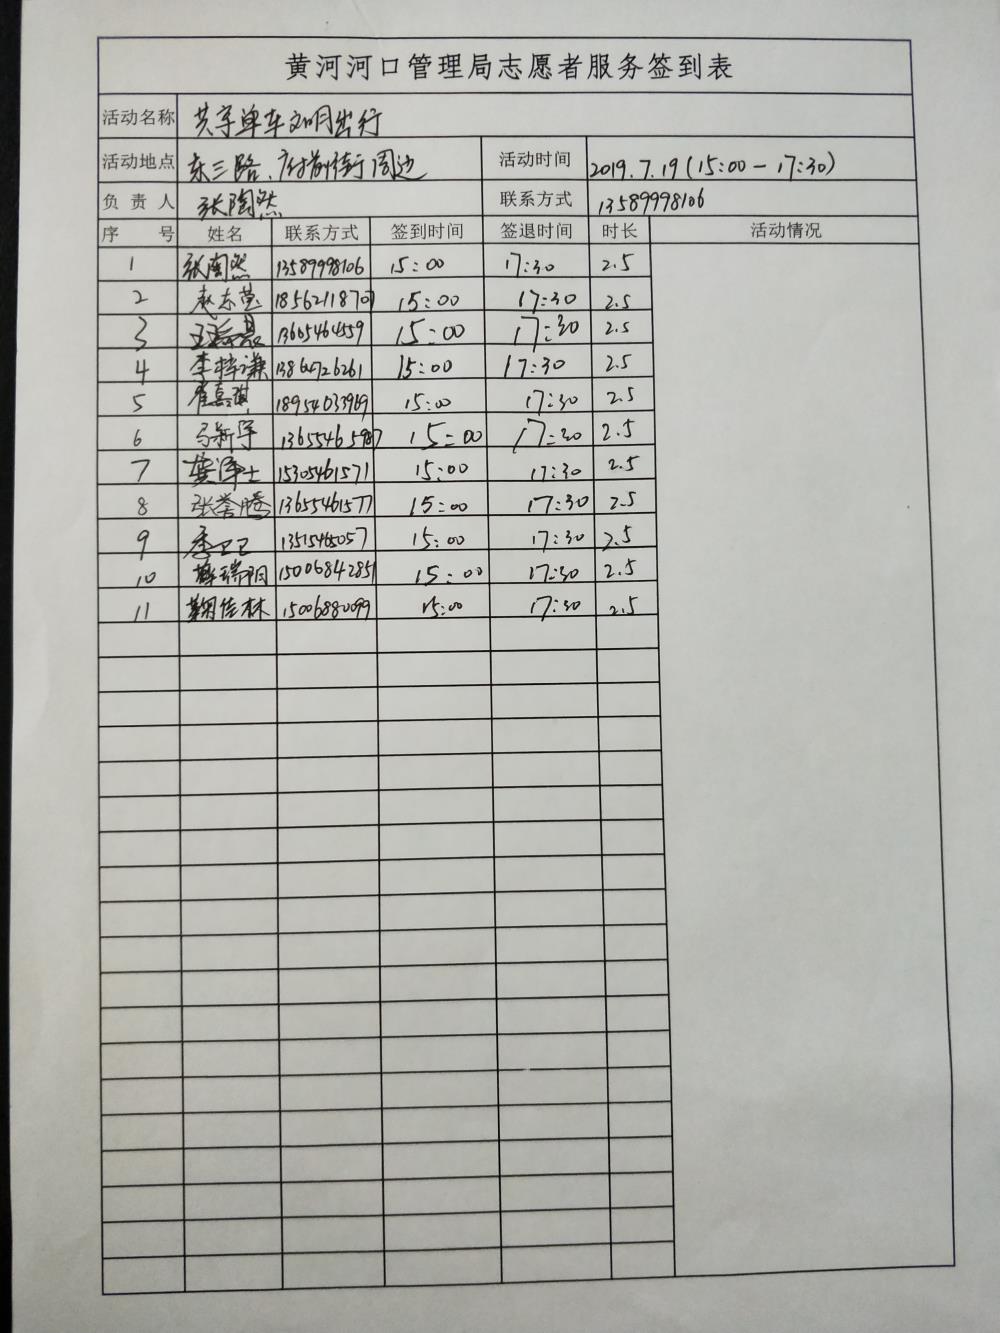 黄河河口管理局志愿者服务签到表
活动名称 共享单车文明出行
活动地点 东三路、府前街周边 活动时间 2019.7.19(15:00-17:30)
负责人 张陶然 联系方式 13589998106
序号 姓名 联系方式 签到时间 签退时间 时长 活动情况
1 张陶然 13589998106 15:00 17:30 2.5
2 18562118707 15:00 17:30 2.5
3 13665464559 15:00 17:30 2.5
4 李梓谦 13864726261 15:00 17:30 2.5
5 崔嘉琪 18954033969 15:00 17:30 2.5
6 马新宇 15:00 17:30 2.5
7 龚泽士 15305461571 15:00 17:30 2.5
8 张誉腾 13655461577 15:00 17:30 2.5
9 季卫卫 1351465057 15:00 17:30 2.5
10 瑞阳 15006842851 15:00 17:30 2.5
11 佳林 15006880099 15:00 17:30 2.5